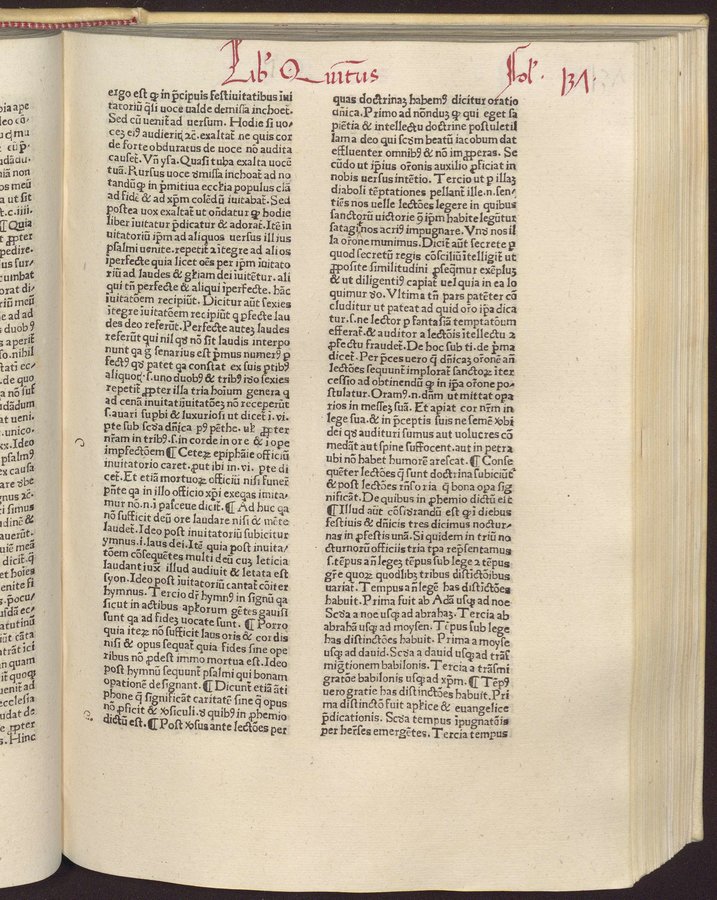 Lib' Quītus
Fol. 131.
ergo est ꝙ in p̄cipuis festiuitatibus īui
tatoriū q̄si uoce ualde demissa inchoet.
Sed cū uenit̄ ad uersum. Hodie si uo-
cez ei9 audierit̉ ⁊c̄. exaltat̄ ne quis cor
de forte obduratus de uoce nō audita
causet̄. Vn̄ ysa. Quasi tuba exalta uocē
tuā. Rursus uoce dmissa inchoat̄ ad no
tandū ꝙ in p̄mitiua eccl'ia populus clā
ad fidē & ad xp̄m colēdū īuitabat̄. Sed
postea uox exaltat̄ ut on̄datur ꝙ hodie
liber īuitatur p̄dicatur & adorat̄. Itē in
uitatoriū ip̄m ad aliquos uersus illius
psalmi uenite. repetit̄ ītegre ad alios
īperfecte quia licet oēs per ip̄m īuitato
riū ad laudes & gr̄iam dei īuitētur. ali
qui tn̄ perfecte & aliqui īperfecte. hāc
īuitatōem recipiūt. Dicitur aūt sexies
ītegre īuitatōem recipiūt ꝙ p̄fecte lau
des deo referūt. Perfecte autez laudes
referūt qui nil qd nō sit laudis interpo
nunt qa ꝗ̄ senarius est p̄mus numer9 ꝑ
fect9 qd patet qa constat ex suis ptib9
aliquot̉. s. uno duob9 & trib9 ido sexies
repetit̄ ꝓpter illa tria hoīum genera ꝙ
ad cenā inuitat̄ inuitatōez nō receperūt
s. auari supbi & luxuriosi ut dicet̄ ī. vi.
pte sub scda dn̄ica p9 pēthe. ul' ꝓpter
nr̄am in trib9. s. in corde in ore & ī ope
impfectōem ¶ Ceterz epiphāie officiū
inuitatorio caret. put ibi in. vi. pte di
cet̄. Et etiā mortuoz̉ officiū nisi funer9
p̄nte qa in illo officio xp̄i exeqas imita-
mur nō. n. ī pasceue dicit̄. ¶ Ad huc qa
nō sufficit deū ore laudare nisi & mēte
laudet̄. Ideo post inuitatoriū subicitur
ymnus. i. laus dei. Itē quia post inuita/
tōem cōsequētes multi deū cuz leticia
laudant iux̄ illud audiuit & letata est
syon. Ideo post īuitatoriū cantat̄ cōiter
hymnus. Tercio dr̄ hymn9 in signū qa
sicut in actibus aptorum gētes gauisi
sunt qa ad fidez uocate sunt. ¶ Porro
quia itez̉ nō sufficit laus oris & cordis
nisi & opus sequat̄ quia fides sine ope
ribus nō pdest immo mortua est. Ideo
post hymnū sequunt̄ psalmi qui bonam
opationē designant. ¶ Dicunt̄ etiā āti
phone ꝙ significāt caritatē sine ꝙ opus
nō ꝓficit & vsiculi. d quib9 in phemio
dictū est. ¶ Post vsus ante lectōes per
quas doctrinaz habem9 dicitur oratio
dn̄ica. Primo ad nōnduz ꝙ qui eget sa
piētia & intellectu doctrine postulet il
lam a deo qui scdm beatū iacobum dat
effluenter omnib9 & nō im̄ꝓperas. Se
cūdo ut īpius orōnis auxilio ꝓficiat in
nobis uersus intētio. Tercio ut p illaz
diaboli tēptationes pellant̄ ille. n. sen/
tiēs nos uelle lectōes legere in quibus
sanctorū uictorie ꝙ ip̄m habite legūtur
satagit nos acri9 impugnare. Vn̄ nos il
la orōne munimus. Dicit̄ aūt secrete ꝑ
quod secretū regis cōsiliū ītelligit̄ ut
ꝓposite similitudini ꝓseqmur exēpluz
& ut diligenti9 capiat̄ uel quia in ea lo
quimur do. Ultima tn̄ pars patēter cō
cluditur ut pateat ad quid orō ip̄a dica
tur. s. ne lector ꝑ fantasiā temptatōum
efferat̄. & auditor a lectōis ītellectu ⁊
ꝓfectu fraudet̄. De hoc sub ti. de p̄ma
dicet̄. Per p̄ces uero ꝙ dn̄icaz orōnē an̄
lectōes sequunt̄ implorat̄ sanctoz̉ īter
cessio ad obtinendū ꝙ in ip̄a orōne po-
stulatur. Oram9. n. dn̄m ut mittat opa
rios in messez suā. Et apiat cor nr̄m in
lege sua. & in p̄ceptis suis ne semē vbi
dei qd audituri sumus aut uolucres cō
medāt aut spine suffocent. aut in petra
ubi nō habet humorē arescat. ¶ Conse
quēter lectōes ꝙ sunt doctrina subiciūt̄
& post lectōes rn̄soria ꝙ bona opa sig
nificāt. De quibus in phemio dictū est
¶ Illud aūt cōsidrandū est ꝙ ī diebus
festiuis & dn̄icis tres dicimus noctur/
nas in p̄festis unā. Si quidem in triū no
cturnorū officiis tria tpa rep̄sentamus
s. tēpus an̄ legez tēpus sub lege ⁊ tēpus
gr̄e quoz̉ quodlibz tribus distīctōibus
uariat̄. Tempus an̄ legē has distīctōes
habuit. Prima fuit ab Adā usqȝ ad noe
Scda a noe usqȝ ad abrahaz. Tercia ab
abrahā usqȝ ad moysen. Tēpus sub lege
has distinctōes habuit. Prima a moyse
usqȝ ad dauid. Scda a dauid usqȝ ad trās
migrtionem babilonis. Tercia a trāsmi
gratōe babilonis usqȝ ad xp̄m. ¶ Tēp9
uero gratie has distinctōes habuit. Pri
ma distinctō fuit aptice & euangelice
p̄dicationis. Scda tempus īpugnatōis
per heēses emergētes. Tercia tempus